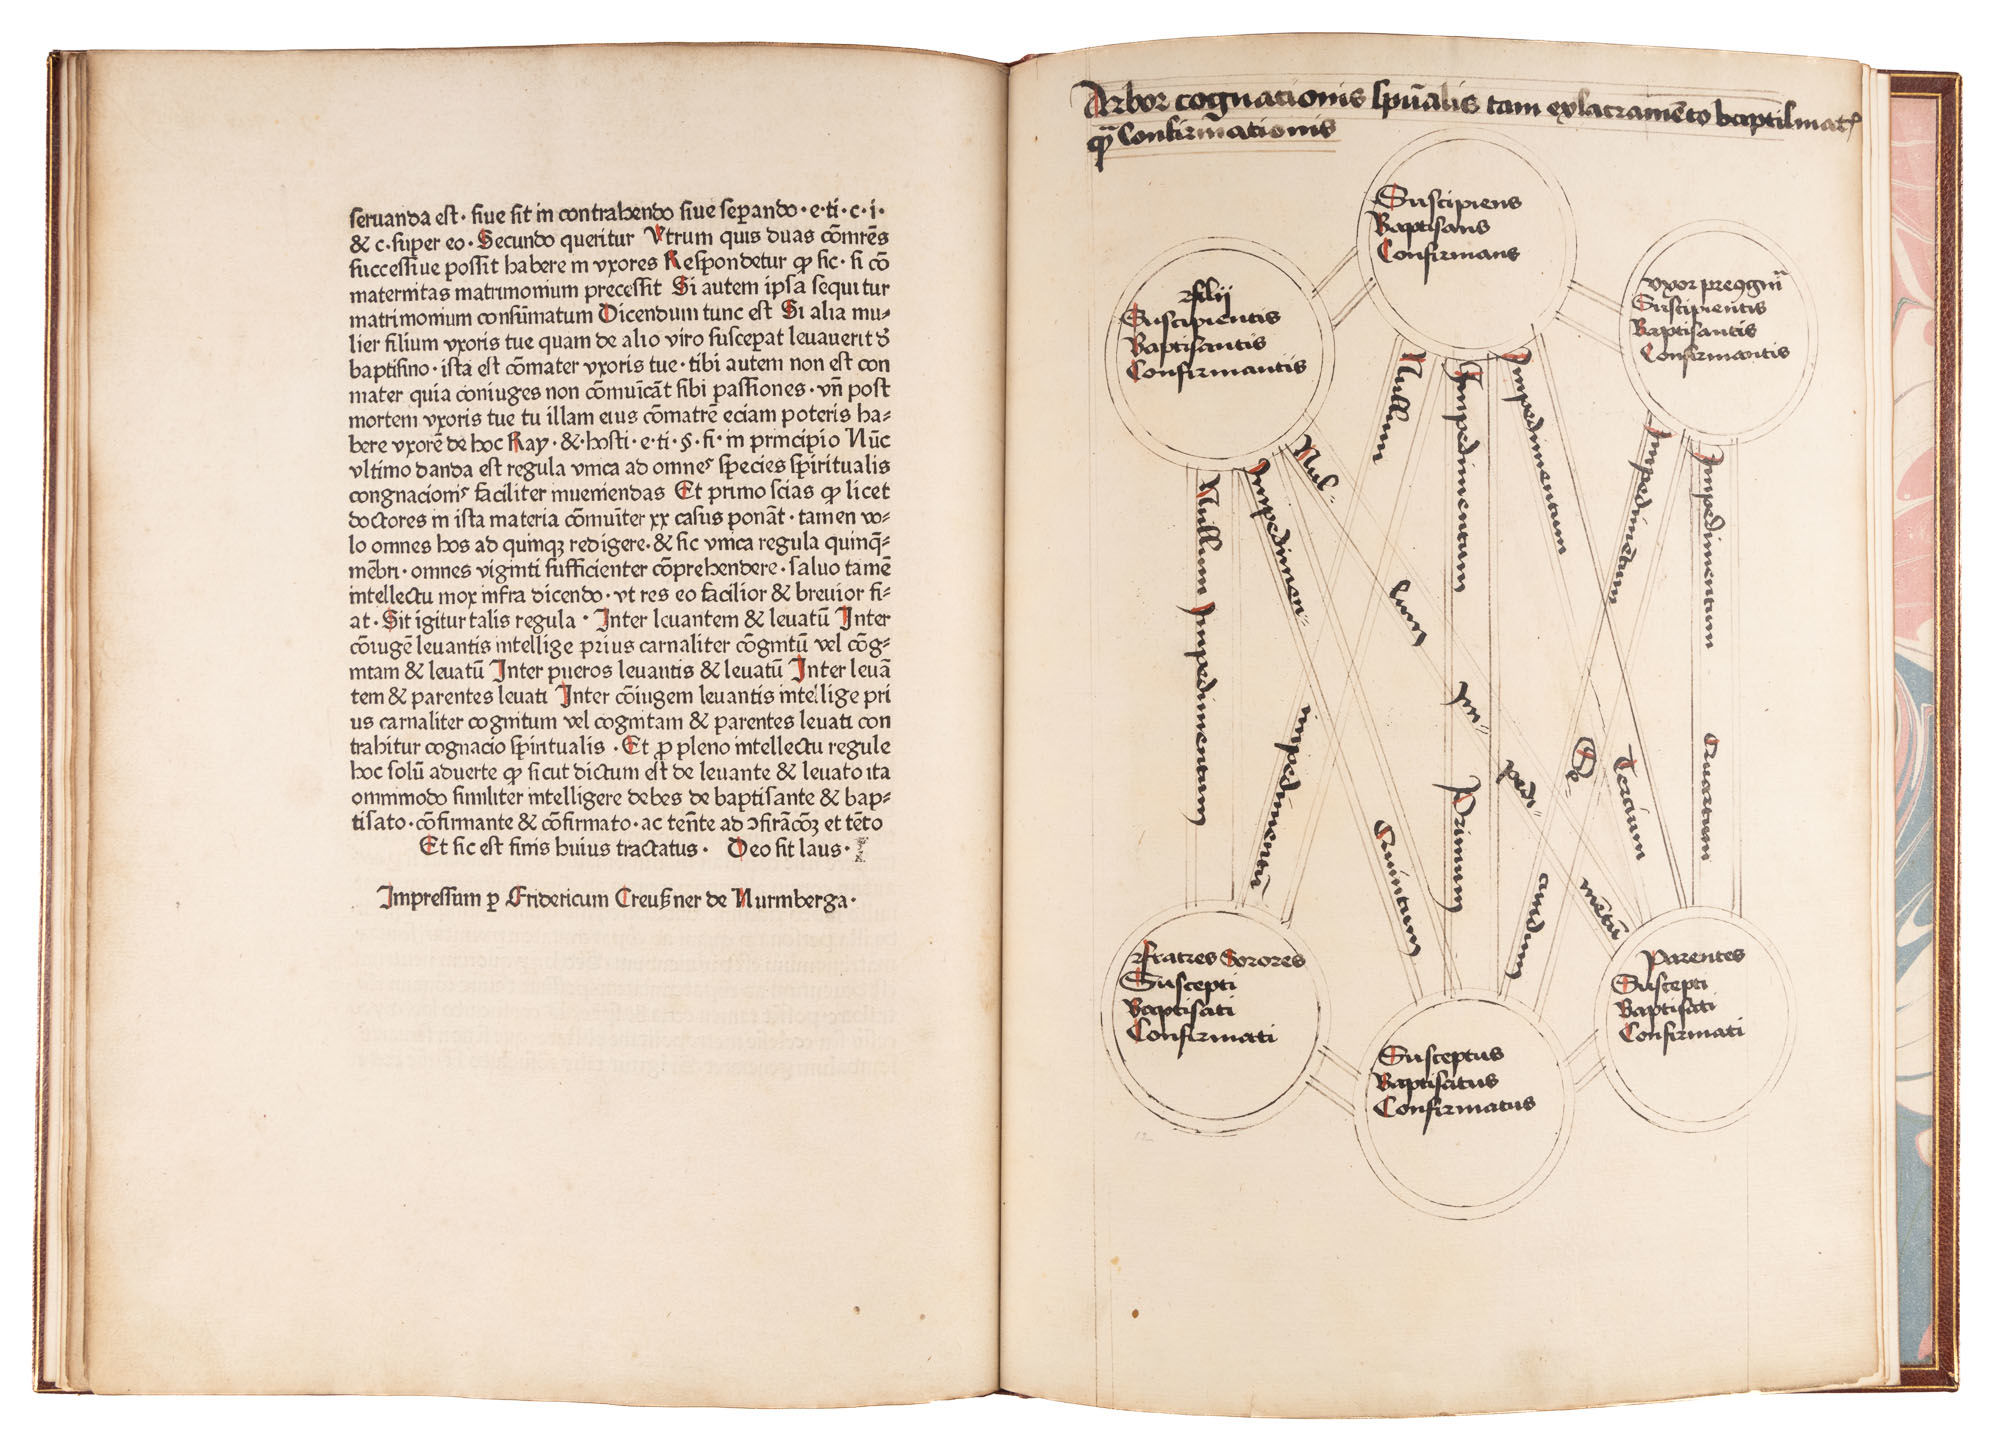 seruanda est · siue sit in contrahendo siue sep̲ando · e · ti · c · i ·
& c · sup̲er eo · Secundo queritur Vtrum quis duas cōmr̄es
successiue possit habere in vxores Respondetur ꝙ sic · si cō
maternitas matrimonium precessit Si autem ipsa sequitur
matrimonium consūmatum Dicendum tunc est Si alia mu⸗
lier filium vxoris tue quam de alio viro susceperat leuauerit d̄
baptismo · ista est cōmater vxoris tue · tibi autem non est con
mater quia coniuges non cōmuīcāt sibi passiones · vn̄ post
mortem vxoris tue tu illam eius cōmatrē eciam poteris ha⸗
bere vxorē de hoc Ray · & · hosti · e · ti · § · fi · in principio Nūc
vltimo danda est regula vnica ad omnes species spiritualis
congnacionis faciliter inueniendas Et primo scias ꝙ licet
doctores in ista materia cōmuīter xx casus ponāt · tamen vo⸗
lo omnes hos ad quinqꝫ redigere · & sic vnica regula quinq̄⸗
mēbri · omnes viginti sufficienter cōprehendere · saluo tamē
intellectu mox infra dicendo · vt res eo facilior & breuior fi⸗
at · Sit igitur talis regula · Inter leuantem & leuatū Inter
cōiugē leuantis intellige prius carnaliter cōgnitū vel cōg⸗
nitam & leuatū Inter pueros leuantis & leuatū Inter leuā
tem & parentes leuati Inter cōiugem leuantis intellige pri
us carnaliter cognitum vel cognitam & parentes leuati con
trahitur cognacio spiritualis · Et p̲ pleno intellectu regule
hoc solū aduerte ꝙ sicut dictum est de leuante & leuato ita
ommmodo similiter intelligere debes de baptisante & bap⸗
tisato · cōfirmante & cōfirmato · ac ten̄te ad ↄfirāc̄oꝫ et tēto
Et sic est finis huius tractatus · Deo sit laus ·
Impressum p̲ Fridericum Creußner de Nurmberga ·
Arbor cognationis spūalis tam ex sacramēto baptismatꝭ
qͣꝫ Confirmationis
Suscipiens
Baptisans
Confirmans
filij
Suscipientis
Baptisantis
Confirmantis
vxor
Suscipientis
Baptisantis
Confirmantis
Nullum
impedimentū
Impedimentum
Primum
Impedimentum
Tercium
Impedimētum
Se⸗
cundum
Impedimentum
Quartum
Nullum Impedimentum
Impedimen⸗
Quintum
Nul⸗
lum
Im⸗
pedi⸗
mētū
fratres Sorores
Suscepti
Baptisati
Confirmati
Susceptus
Baptisatus
Confirmatus
Parentes
Suscepti
Baptisati
Confirmati